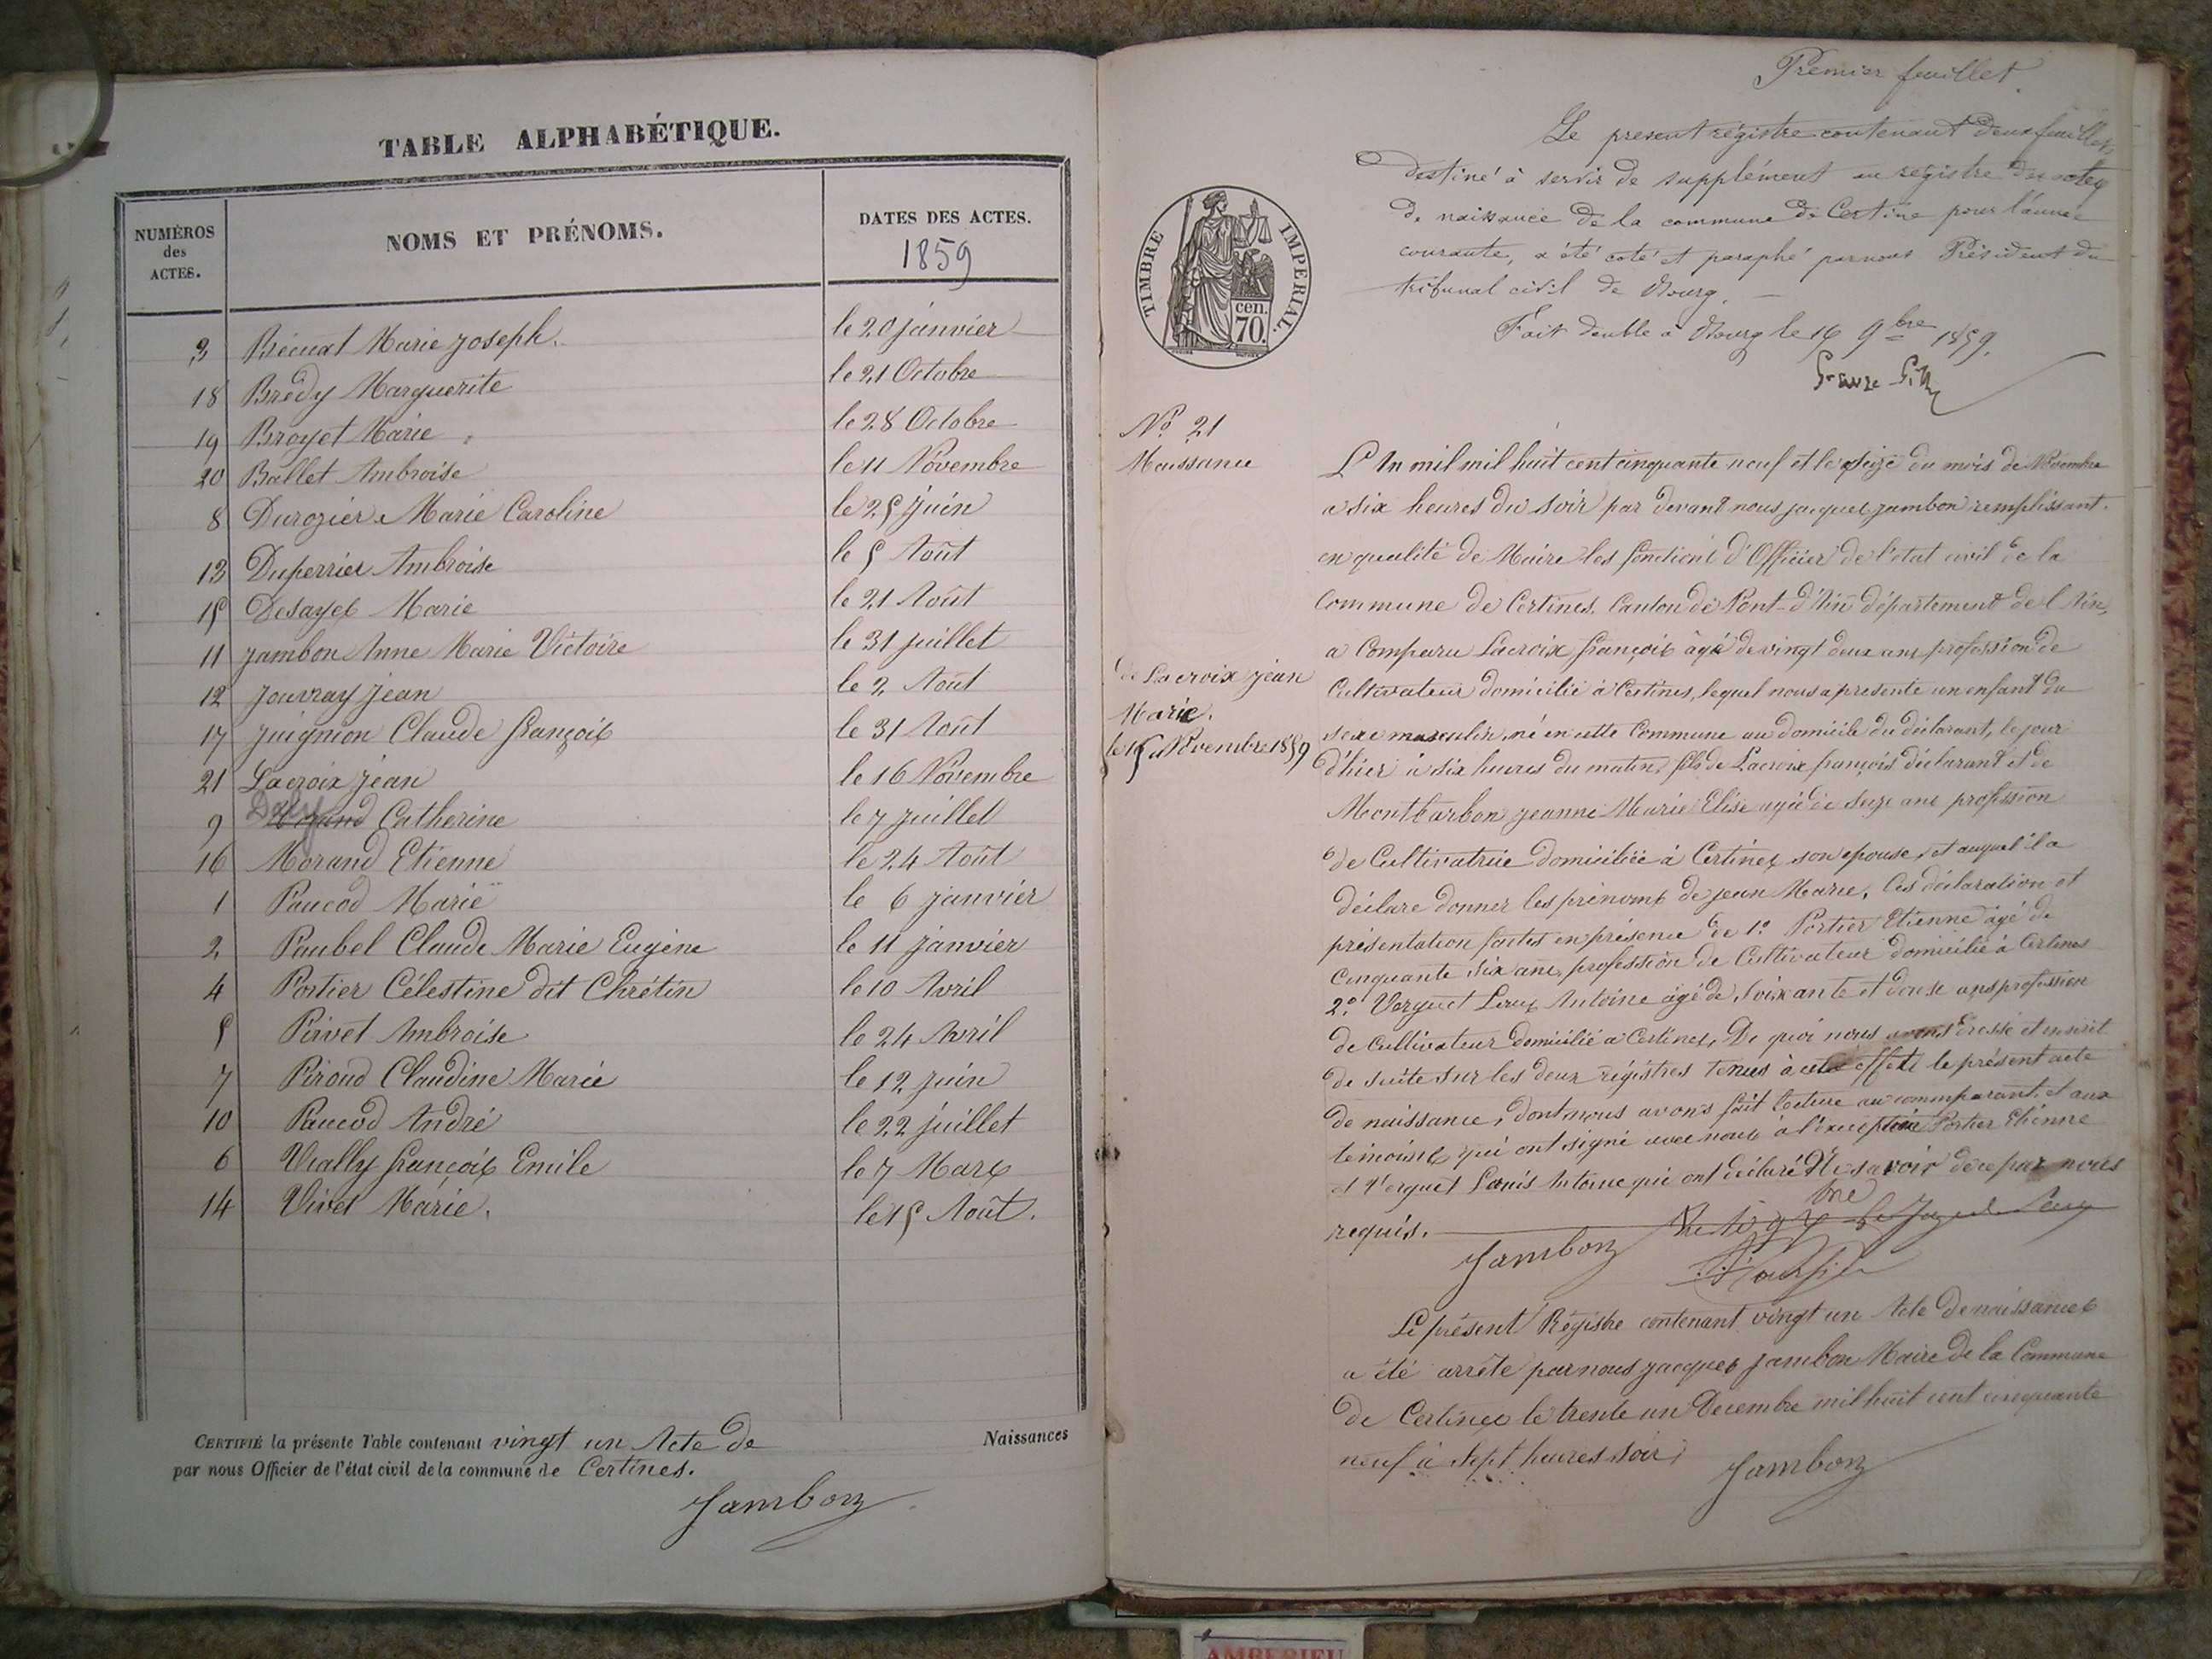 TABLE ALPHABÉTIQUE.
NUMÉROS des ACTES.
NOMS ET PRÉNOMS.
DATES DES ACTES.
1859
3 Brécuat Marie Joseph. le 20 janvier
18 Brédy Marguerite le 21 Octobre
19 Broyet Marie le 28 Octobre
20 Ballet Ambroise le 11 Novembre
8 Durozier Marie Caroline le 25 juin
13 Duperrier Ambroise le 5 Août
15 Desayes Marie le 21 Août
11 Jambon Anne Marie Victoire le 31 juillet
12 Jouvray jean le 2 Août
17 Juignion Claude françois le 31 Août
21 Lacroix jean le 16 Novembre
9 Catherine le 7 juillet
16 Morand Etienne le 24 Août
1 Paucod Marie le 6 janvier
2 Paubel Claude Marie Eugène le 11 janvier
4 Portier Célestine dit Chrétin le 10 Avril
5 Pirvet Ambroise le 24 Avril
7 Piroud Claudine Marie le 12 juin
10 Paucod André le 22 juillet
6 Vially françois Emile le 7 Mars
14 Vivet Marie. le 15 Août.
CERTIFIÉ la présente Table contenant vingt un Acte de Naissances
par nous Officier de l'état civil de la commune de Certines.
Jambon
Premier feuillet.
Le present régistre contenant deux feuillets
destiné à servir de supplément au registre des actes
de naissance de la commune de Certine pour l'année
courante, a été coté et paraphé par nous Président du
tribunal civil de Bourg.
Fait double à Bourg le 16 9bre 1859.
TIMBRE IMPERIAL.
cen. 70.
No 21
Naissance
de Lacroix jean
Marie.
le 15 Novembre 1859
L'An mil mil huit cent cinquante neuf et le seize du mois de Novembre
a six heures du soir par devant nous jacques jambon remplissant
en qualité de Maire les fonctions d'Officier de l'état civil de la
Commune de Certines, Canton de Pont-d'Ain département de l'Ain,
a Comparu Lacroix françois âgé de vingt deux ans profession de
Cultivateur domicilié à Certines, lequel nous a presente un enfant du
sexe masculin, né en cette Commune au domicile du déclarant, le jour
d'hier à six heures du matin, fils de Lacroix françois déclarant et de
Montbarbon jeanne Marie Elise agée de seize ans profession
de Cultivatrice domiciliée à Certines son epouse, et auquel il a
déclare donner les prénoms de jean Marie. Ces déclaration et
présentation faites en présence de 1o Portier Etienne âgé de
Cinquante six ans, profession de Cultivateur domicilié à Certines
2o Verguet Antoine âgé de Soixante et douse ans profession
de Cultivateur domicilié a Certines, De quoi nous avons dressé et inscrit
de suite sur les deux régistres tenus à cet effet le présent acte
de naissance, dont nous avons fait lecture au comparant et aux
temoins qui ont signé avec nous a l'exception Portier Etienne
et Verguet Louis Antoine qui ont déclaré Ne savoir de ce par nous
requis.
Jambon
Le présent Régistre contenant vingt un Acte de naissances
a été arrêté par nous jacques jambon Maire de la Commune
de Certines le trente un Decembre mil huit cent cinquante
neuf à sept heures soir
Jambon
AMBERIEU